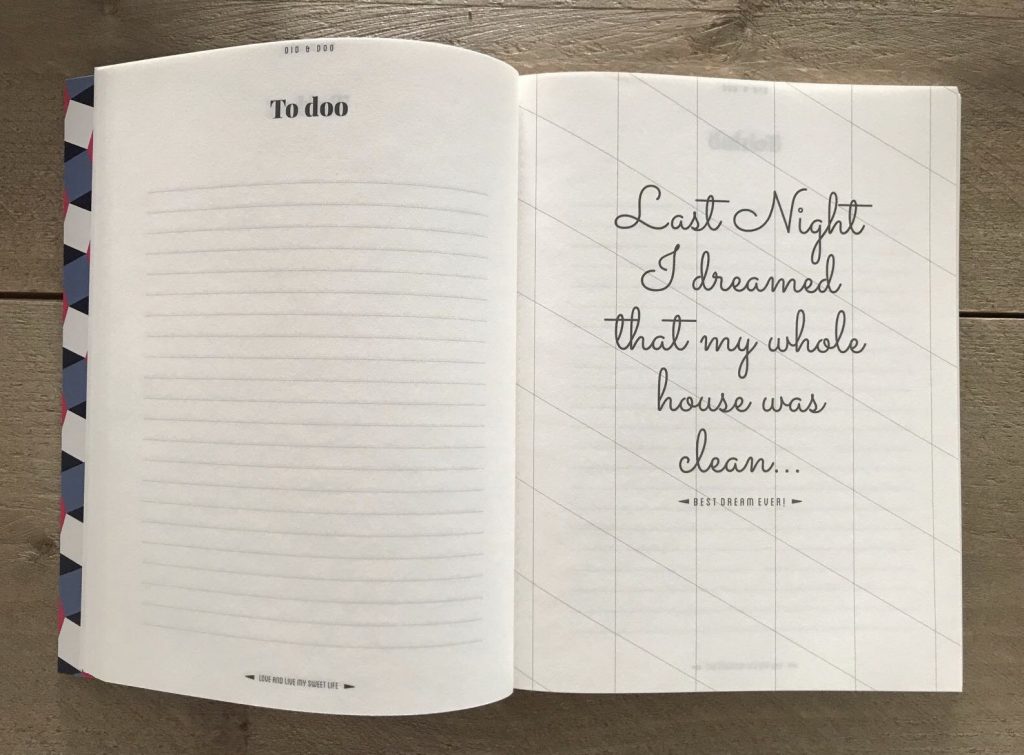 DID & DOO
To doo
LOVE AND LIVE MY SWEET LIFE
Last Night
I dreamed
that my whole
house was
clean...
BEST DREAM EVER!